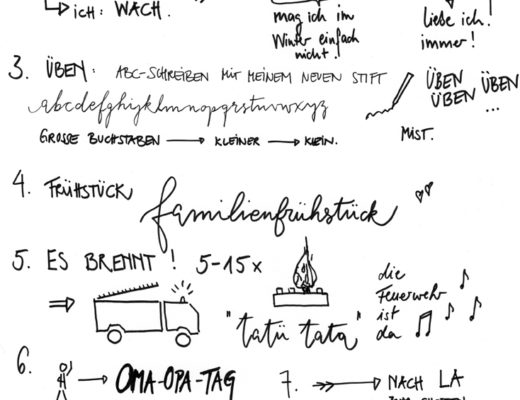 ICH: WACH.
mag ich im
Winter einfach
nicht!
liebe ich!
immer!
3. ÜBEN: ABC-SCHREIBEN MIT MEINEM NEUEN STIFT
abcdefghijklmnopqrstuvwxyz
GROSSE BUCHSTABEN → KLEINER → KLEIN.
ÜBEN
ÜBEN ÜBEN
...
MIST.
4. FRÜHSTÜCK familienfrühstück
5. ES BRENNT! 5-15x
"tatü tata"
die
Feuerwehr
ist
da
6. OMA-OPA-TAG
7. NACH LA